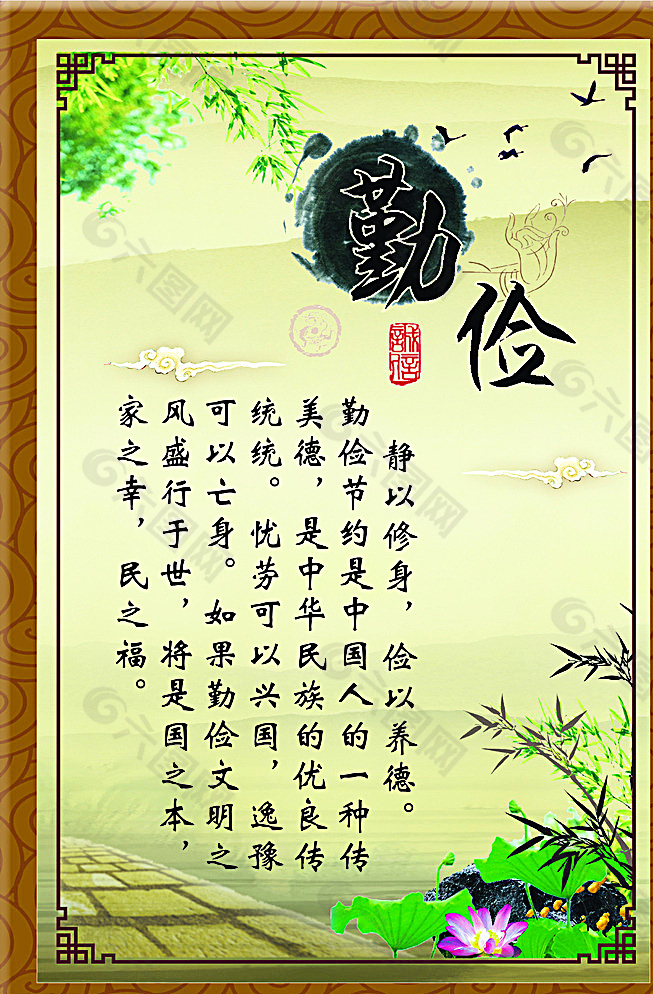 勤俭
誠信
静以修身，俭以养德。
勤俭节约是中国人的一种传
美德，是中华民族的优良传
统统。忧劳可以兴国，逸豫
可以亡身。如果勤俭文明之
风盛行于世，将是国之本，
家之幸，民之福。
六图网